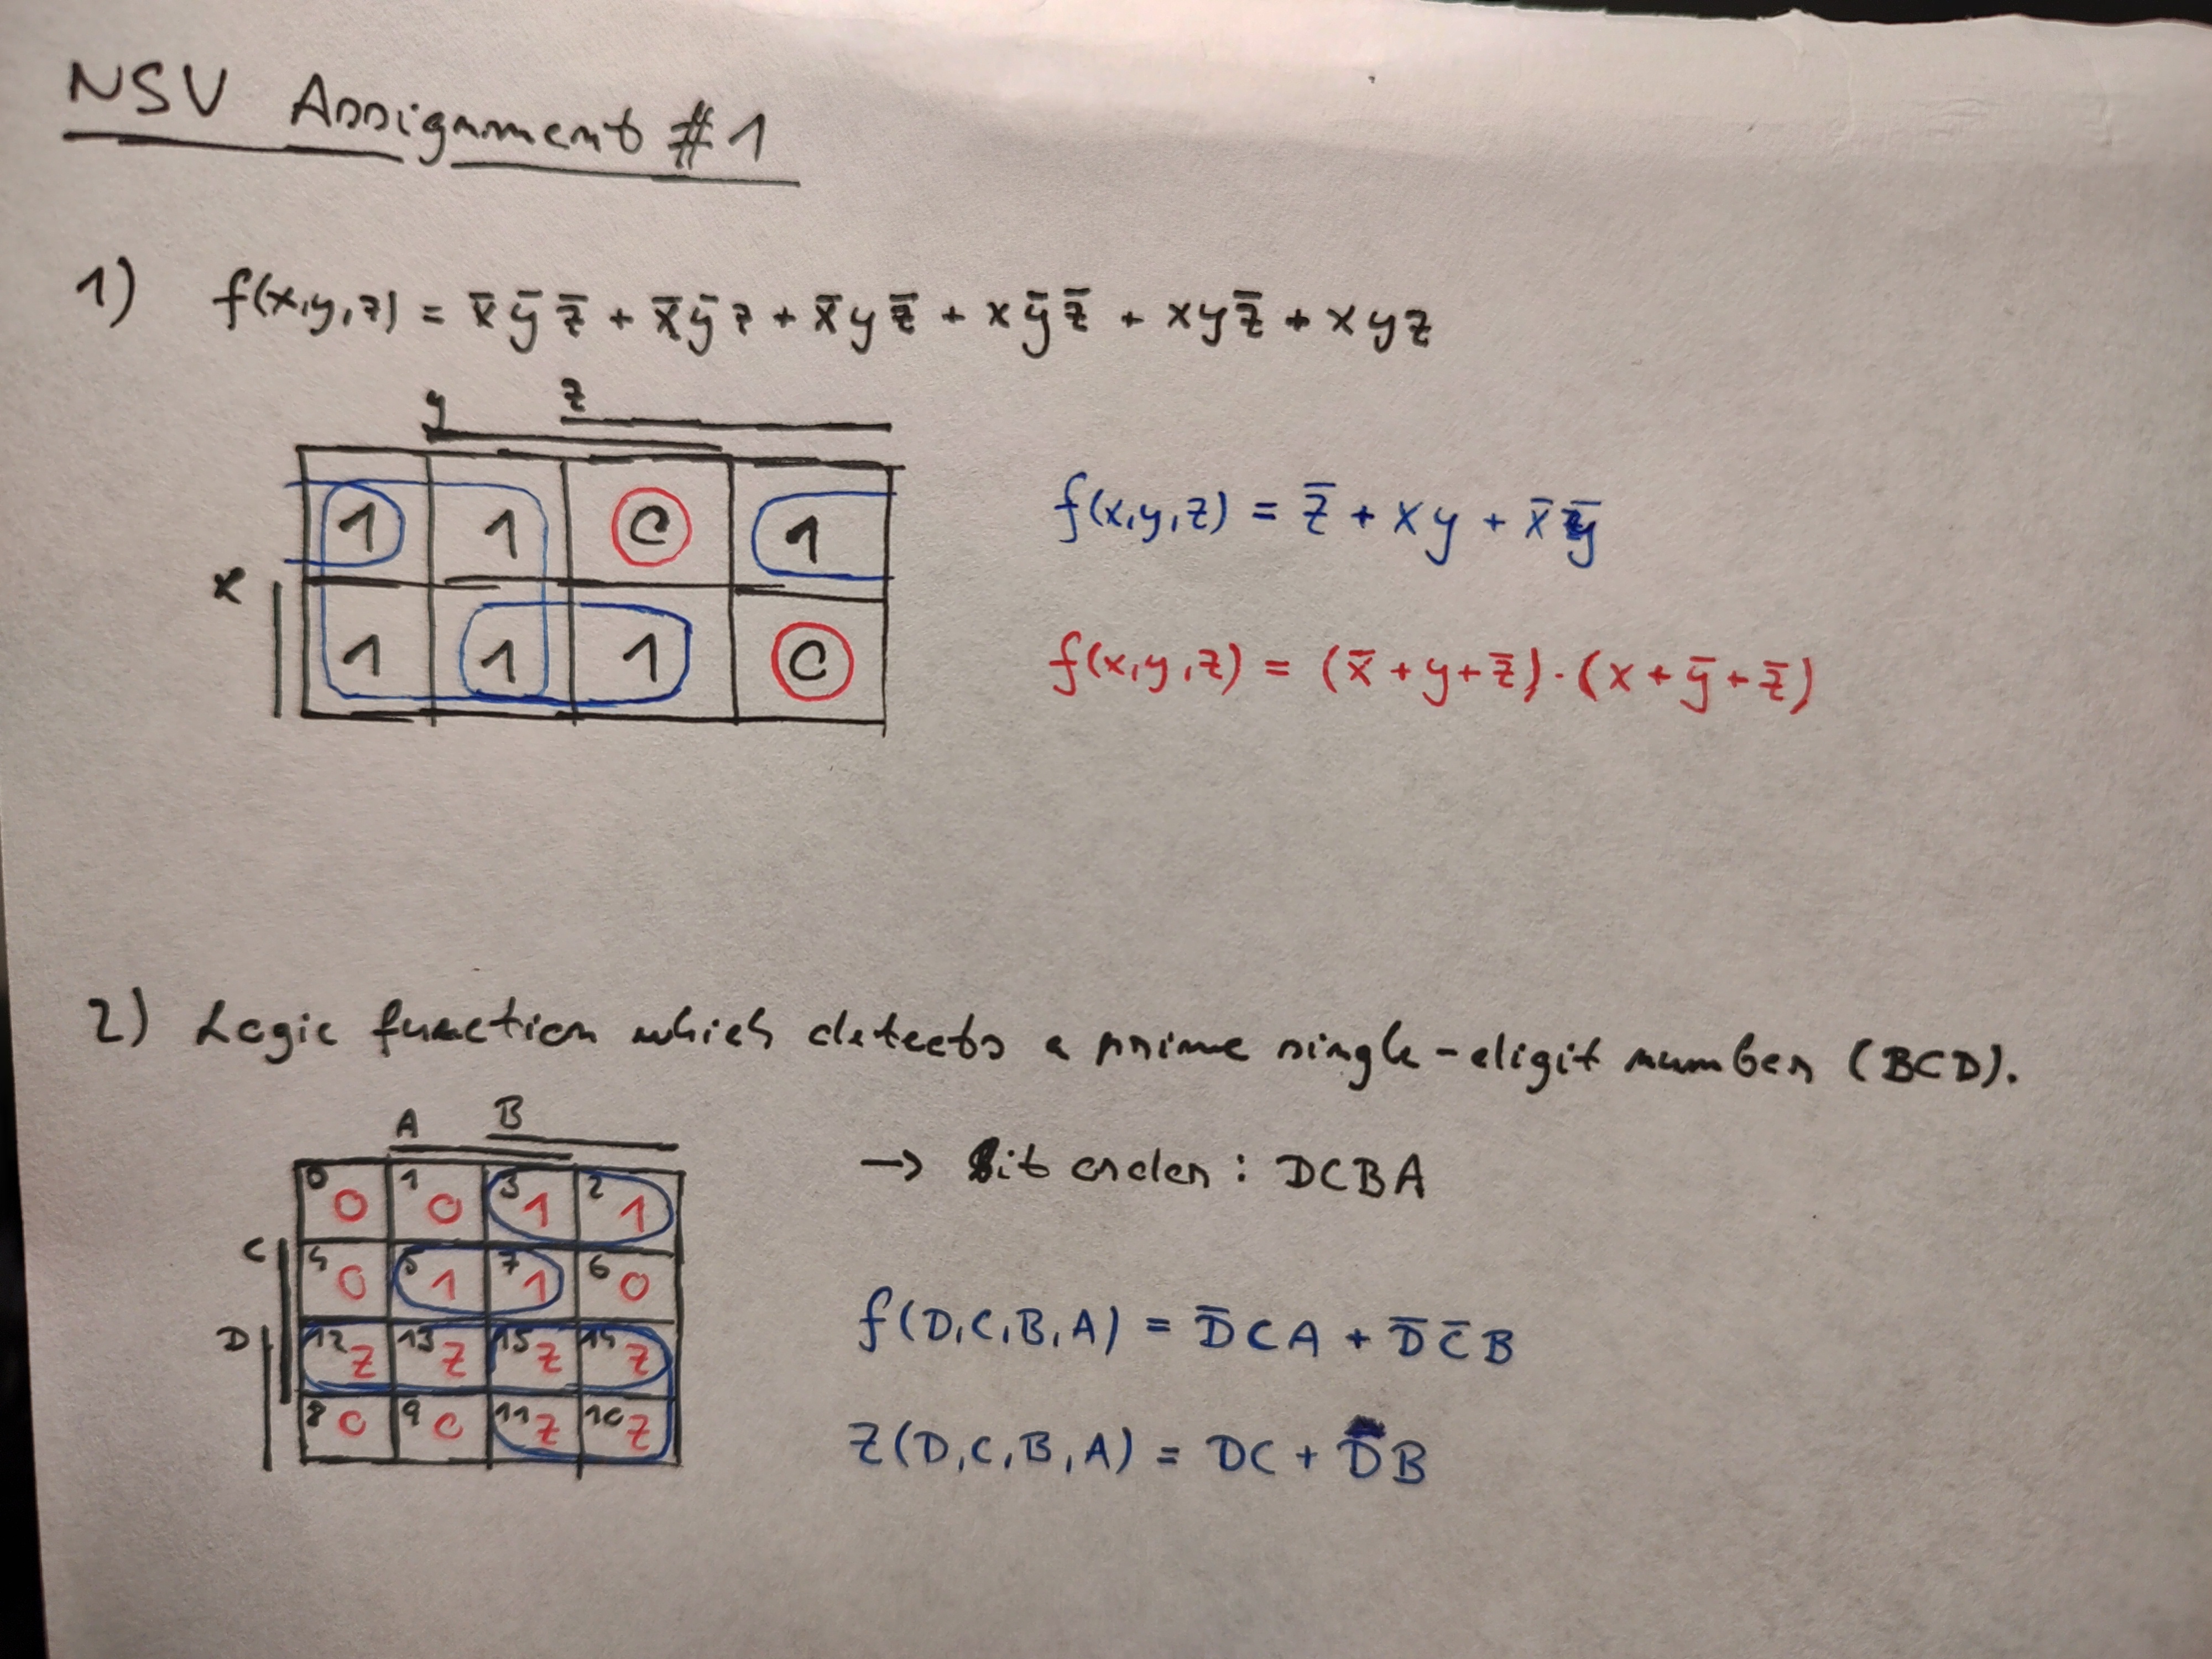 NSV Assignment #1
1) f(x,y,z) = x̄ ȳ z̄ + x̄ ȳ z + x̄ y z̄ + x ȳ z̄ + x y z̄ + x y z
y z
1 1 0 1
x
1 1 1 0
f(x,y,z) = z̄ + x y + x̄ ȳ
f(x,y,z) = (x̄ + y + z̄) · (x + ȳ + z̄)
2) Logic function which detects a prime single-digit number (BCD).
A B
0 0 1 0 3 1 2 1
C
4 0 5 1 7 1 6 0
D
12 Z 13 Z 15 Z 14 Z
8 0 9 0 11 Z 10 Z
→ Bit order: DCBA
f(D,C,B,A) = D̄ C A + D̄ C̄ B
Z(D,C,B,A) = DC + D B